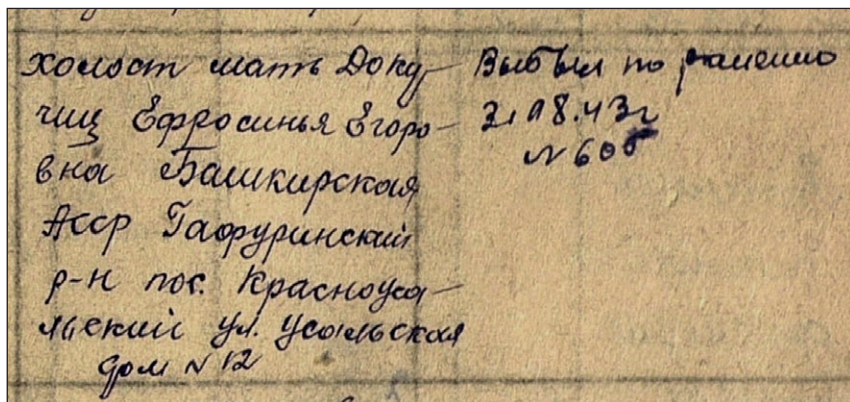 холост мать Доку-
чиц Ефросинья Егоро-
вна Башкирская
Асср Гафуринский
р-н пос. Красноуса-
льский ул. Усольская
дом N 12
Выбыл по ранению
31.08.43г
N 606